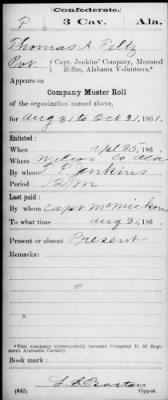 Confederate.
P 3 Cav. Ala.
Thomas A. Peltz
Pvt, Capt. Jenkins' Company, Mounted
Rifles, Alabama Volunteers.*
Appears on
Company Muster Roll
of the organization named above,
for Aug 31 to Oct 31, 1861.
Enlisted:
When Apl 25, 186
Where Wilcox Co Ala
By whom T. F. Jenkins
Period 12/m
Last paid:
By whom Capt
To what time Aug 31, 186
Present or absent Present
Remarks:
*This company subsequently became Company B, 3d Regiment
Alabama Cavalry.
Book mark:
(642) Copyist.